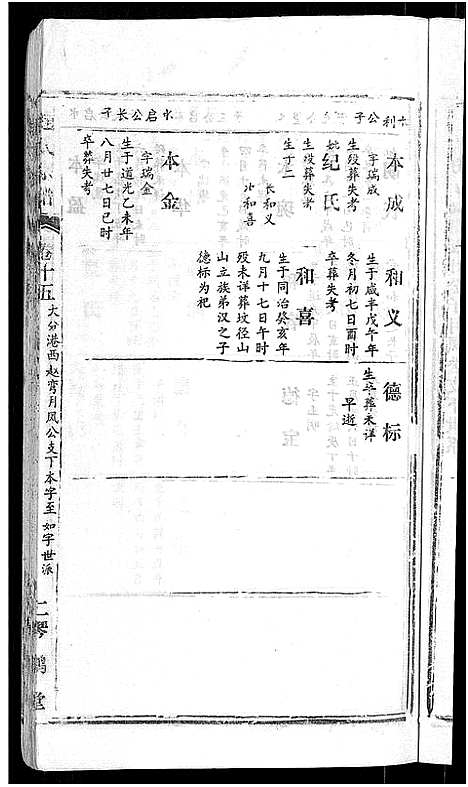 利公子
本成
字瑞成
生殁葬失考
妣纪氏
生殁葬失考
生子二
长和义
次和喜
水启公长子
本金
字瑞金
生于道光乙未年
八月廿七日巳时
卒葬失考
和义
生于咸丰戊午年
冬月初七日酉时
卒葬失考
和喜
生于同治癸亥年
九月十七日午时
殁未详葬坟径山
山立族弟汉之子
德标为祀
德标
生卒葬未详
早逝
卷十五
大分港西赵弯月凤公支下本字至如字世派
二琴鹤堂